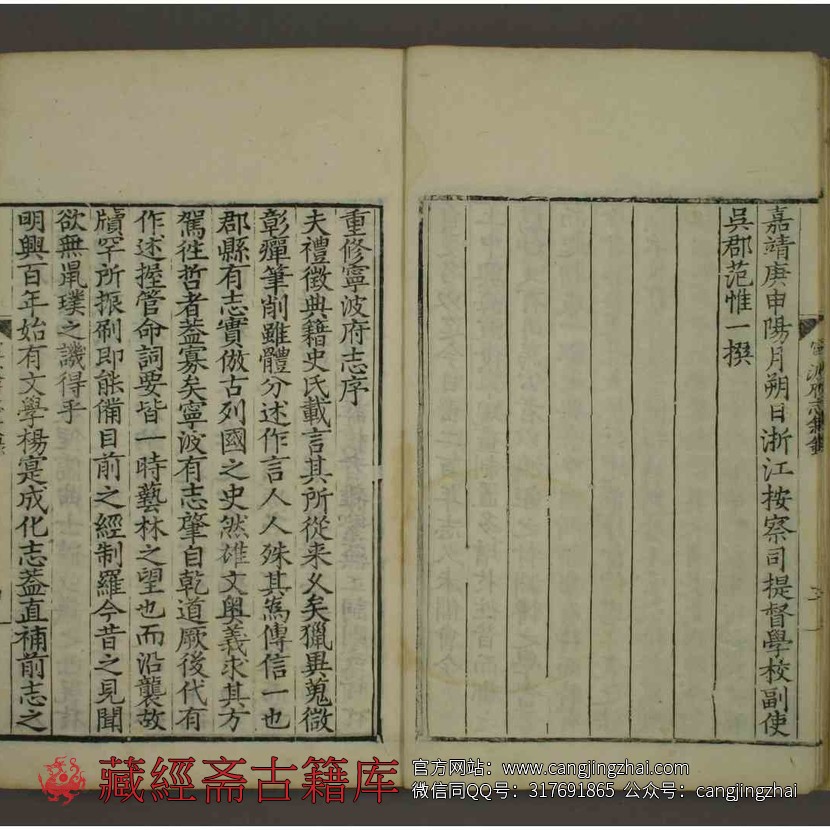 嘉靖庚申陽月朔日浙江按察司提督學校副使
吳郡范惟一撰
重修寧波府志序
夫禮徵典籍史氏載言其所從来乆矣獵異蒐微
彰癉筆削雖體分述作言人人殊其為傳信一也
郡縣有志實倣古列國之史然雄文奥義求其方
駕徃哲者葢寡矣寧波有志肇自乾道厥後代有
作述握管命詞要皆一時藝林之望也而沿襲故
牘罕所振刷即能備目前之經制羅今昔之見聞
欲無鼠璞之譏得乎
明興百年始有文學楊寔成化志葢直補前志之
藏經斋古籍库
官方网站：www.cangjingzhai.com
微信同QQ号：317691865 公众号：cangjingzhai